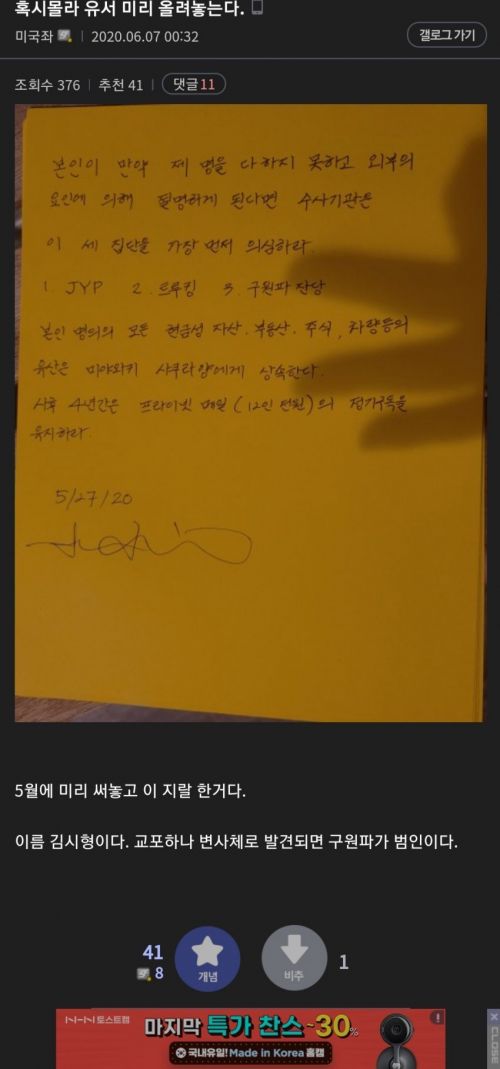 혹시몰라 유서 미리 올려놓는다.
미국좌 | 2020.06.07 00:32
갤로그 가기
조회수 376 | 추천 41 | 댓글 11
본인이 만약 제 명을 다하지 못하고 외부의
요인에 의해 절명하게 된다면 수사기관은
이 세 집단을 가장 먼저 의심하라.
1. JYP 2. 드루킹 3. 구원파 잔당
본인 명의의 모든 현금성 자산, 부동산, 주식, 차량등의
유산은 미야와키 사쿠라양에게 상속한다.
사후 4년간은 프라이빗 메일 (12인 전원)의 정기구독을
유지하라.
5/27/20
5월에 미리 써놓고 이 지랄 한거다.
이름 김시형이다. 교포하나 변사체로 발견되면 구원파가 범인이다.
41
8
개념
비추
1
토스트캠
마지막 특가 찬스 ~30%
국내유일! Made in Korea 홈캠
X CLOSE